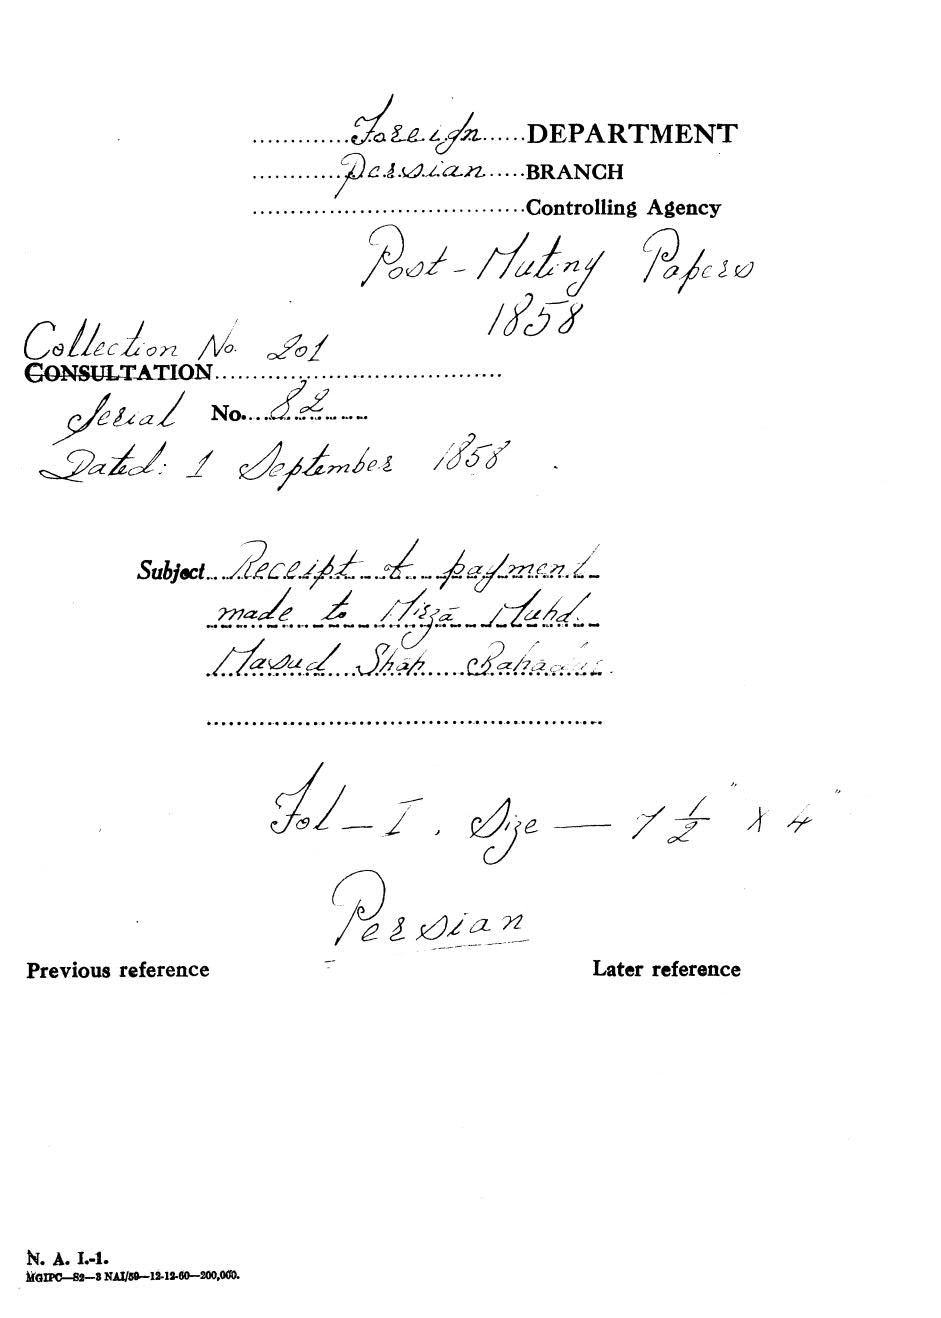 Foreign DEPARTMENT
Persian BRANCH
Controlling Agency
Post-Mutiny Papers
1858
Collection No. 201
CONSULTATION
Serial No. 82
Dated: 1 September 1858
Subject Receipt of payment
made to Mirzā Muhd.
Masud Shah Bahadur.
Fol – I. Size — 7 1/2" X 4"
Persian
Previous reference Later reference
N. A. I.-1.
MGIPC—S2—3 NAI/59—12-12-60—200,000.